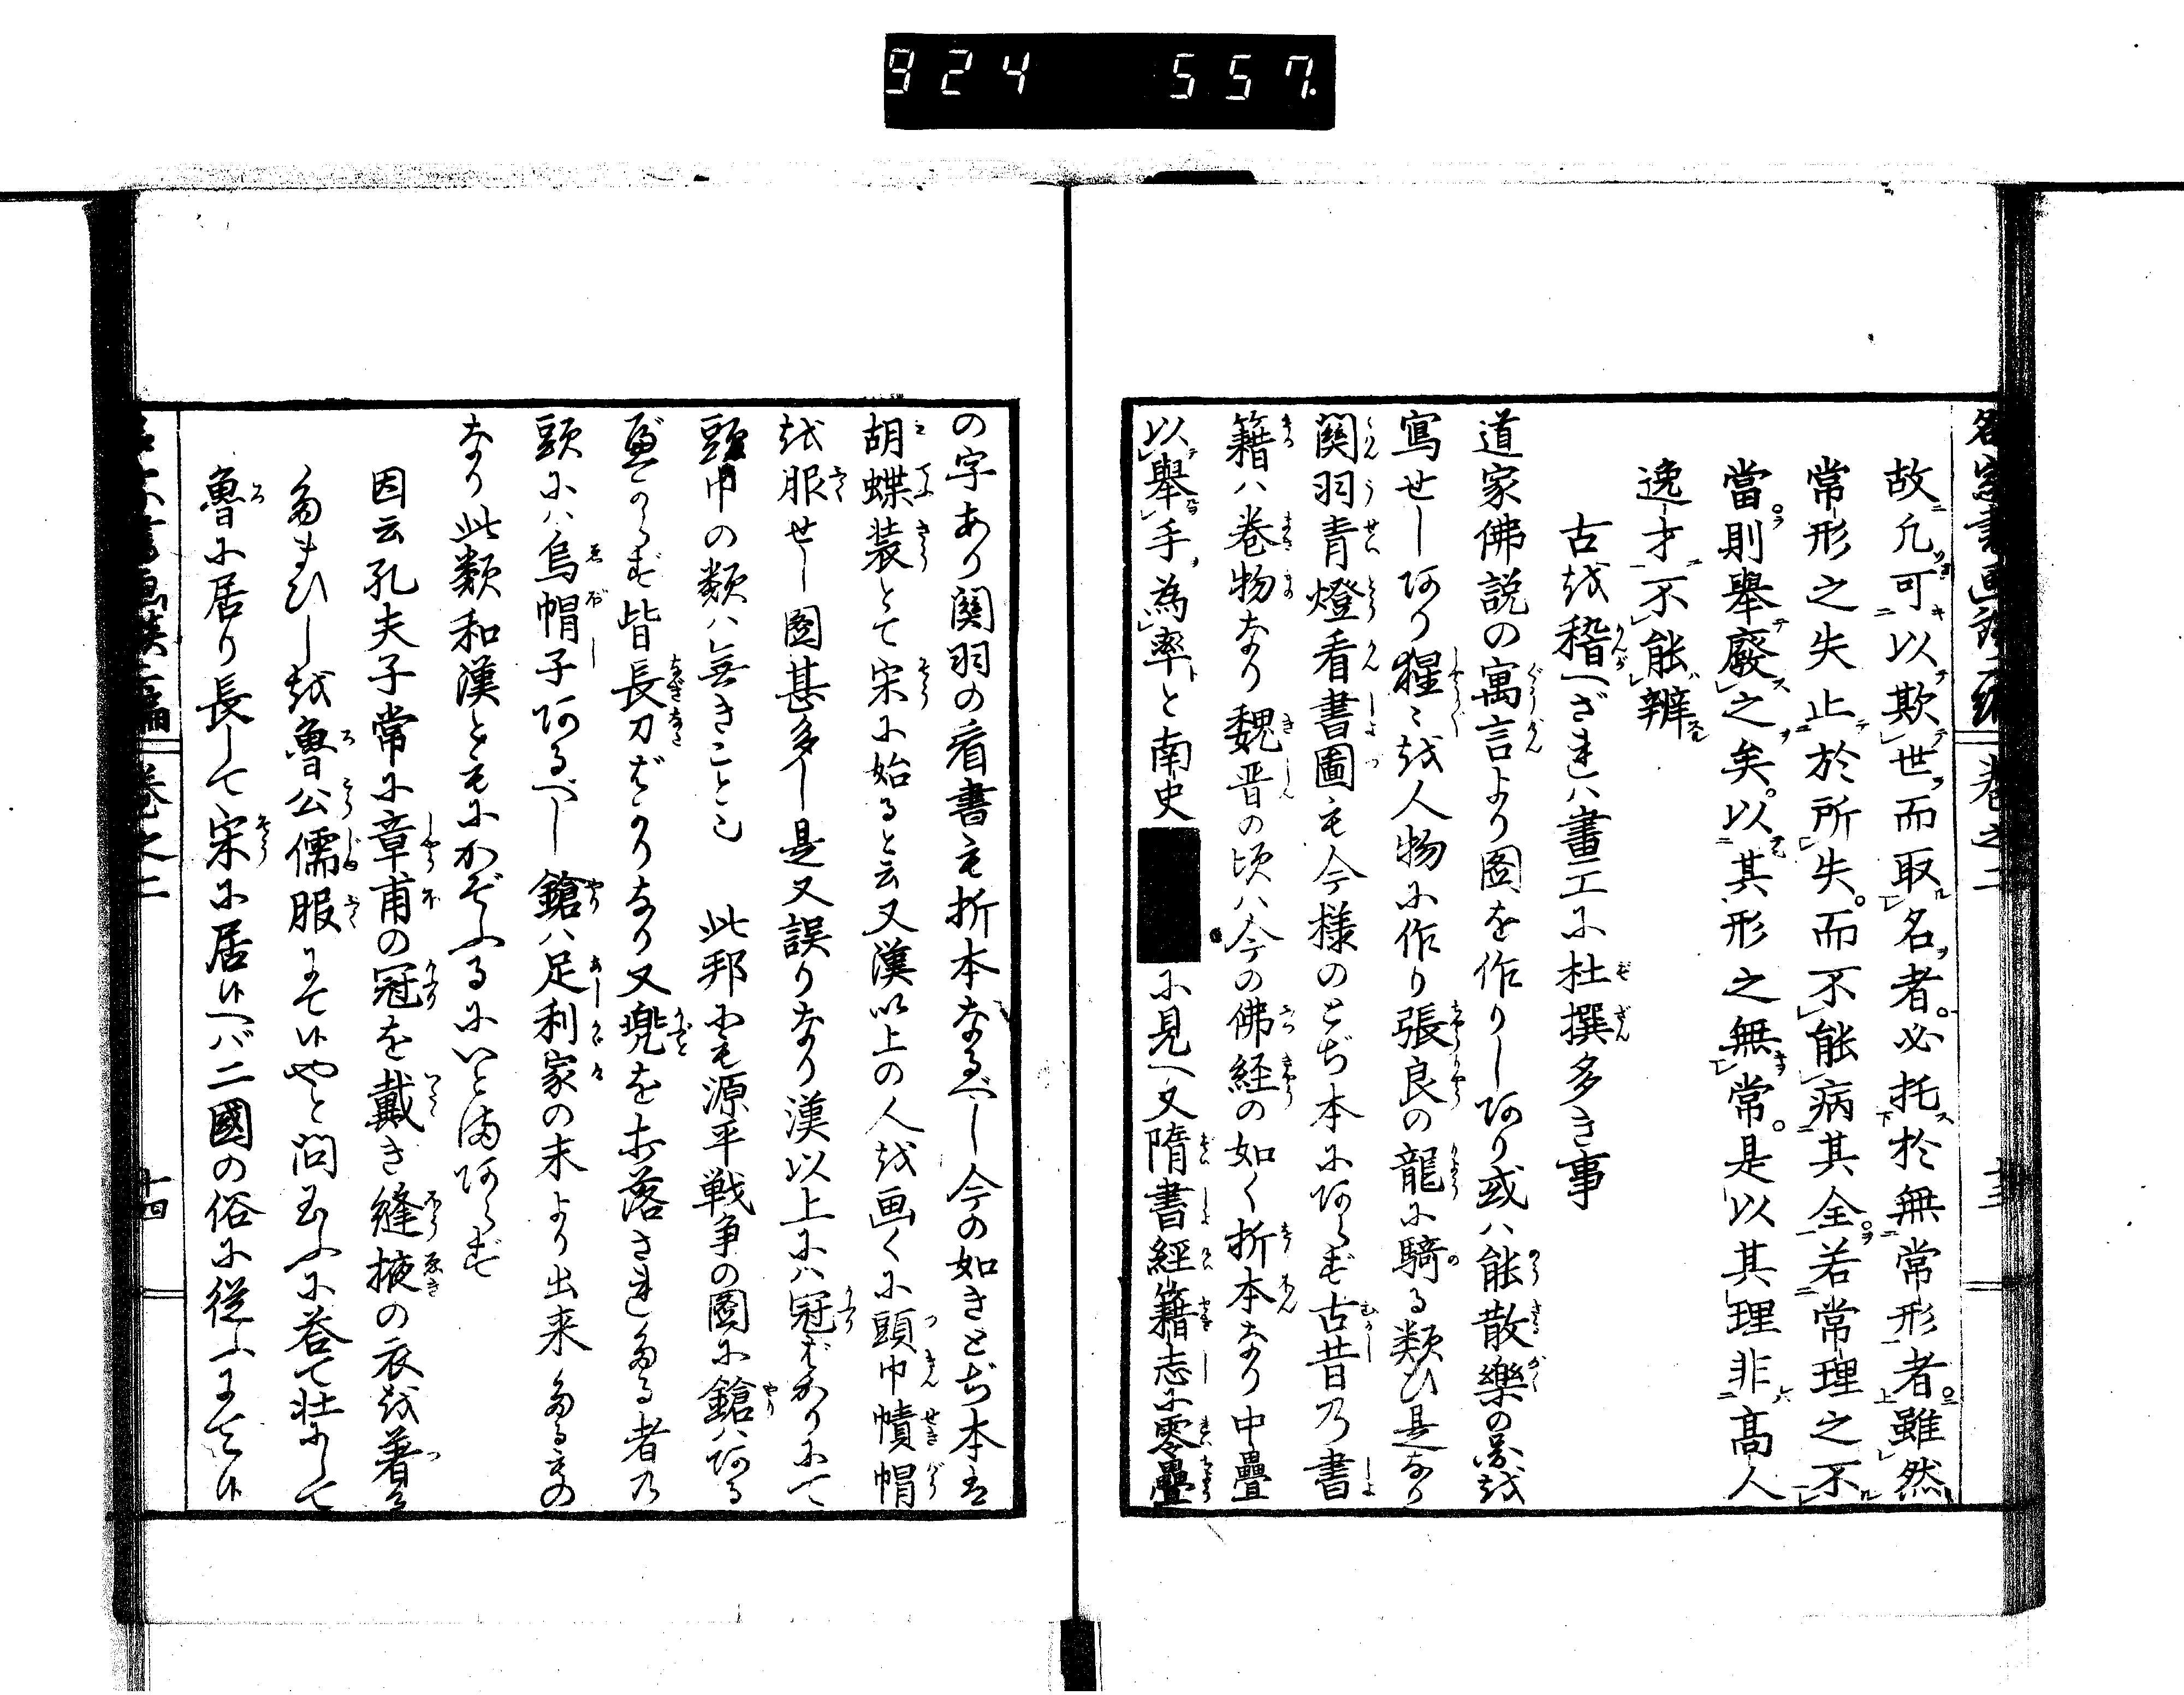 924 557.
卷之二 十三
故凡可以欺世而取名者。必托於無常形者。雖然
常形之失止於所失。而不能病其全。若常理之不
當。則舉廢之矣。以其形之無常。是以其理非高人
逸才不能辨
古越稽へざれハ畫工に杜撰多き事
道家佛説の寓言より圖を作りしあり或ハ能散樂の家越
寫せしあり猩〻越人物に作り張良の龍に騎る類ひ是なり
関羽青燈看書圖も今様のとぢ本にあらず古昔乃書
籍ハ巻物なり魏晋の頃ハ今の佛経の如く折本なり中疊
以舉手為率と南史に見へ又隋書經籍志に零疊
の字あり関羽の看書も折本なるべし今の如きとぢ本は
胡蝶装とて宋に始ると云又漢以上の人越画くに頭巾幘帽
越服せし圖甚多し是又誤りなり漢以上にハ冠ばかりにて
頭巾の類ハ無きこと也 此邦にも源平戦争の圖に鎗ハある
べからず皆長刀ばかりなり又兜をお落されたる者乃
頭にハ烏帽子あるべし 鎗ハ足利家の末より出来たるもの
なり此類和漢ともにかぞふるにいとまあらず
因云孔夫子常に章甫の冠を戴き縫掖の衣越著
たまひし越魯公儒服にて候やと問玉ふに答て壮にして
魯に居り長して宋に居候へバ二國の俗に従ふまで候
卷之二 十四